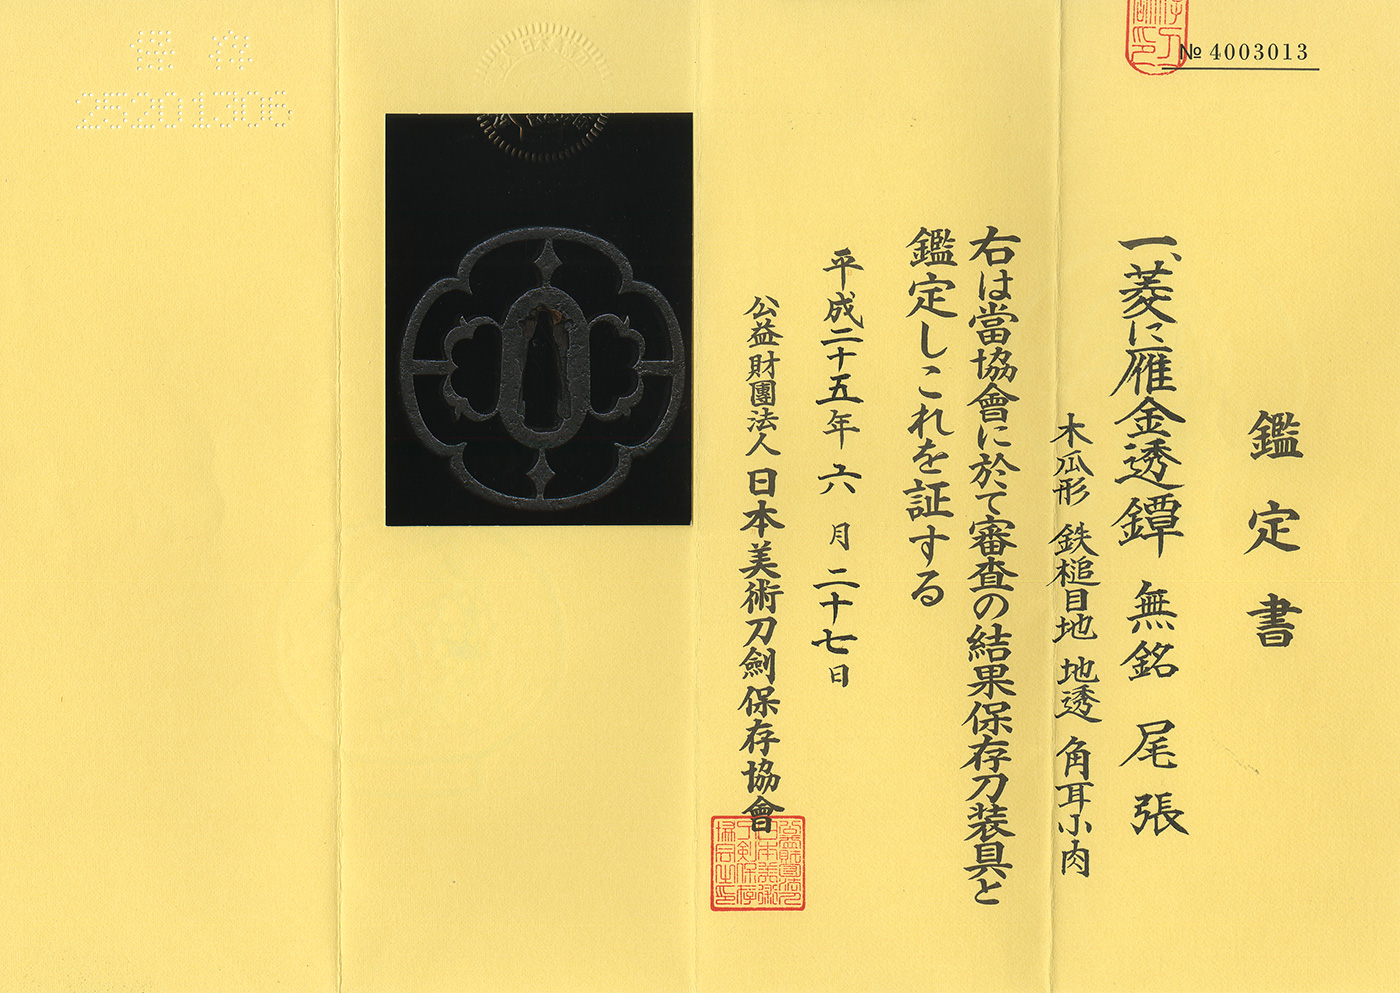 № 4003013
鑑定書
一、菱に雁金透鐔 無銘 尾張
木瓜形 鉄槌目地 地透 角耳小肉
右は當協會に於て審査の結果保存刀装具と
鑑定しこれを証する
平成二十五年六月二十七日
公益財團法人日本美術刀劍保存協會
保存
25201306